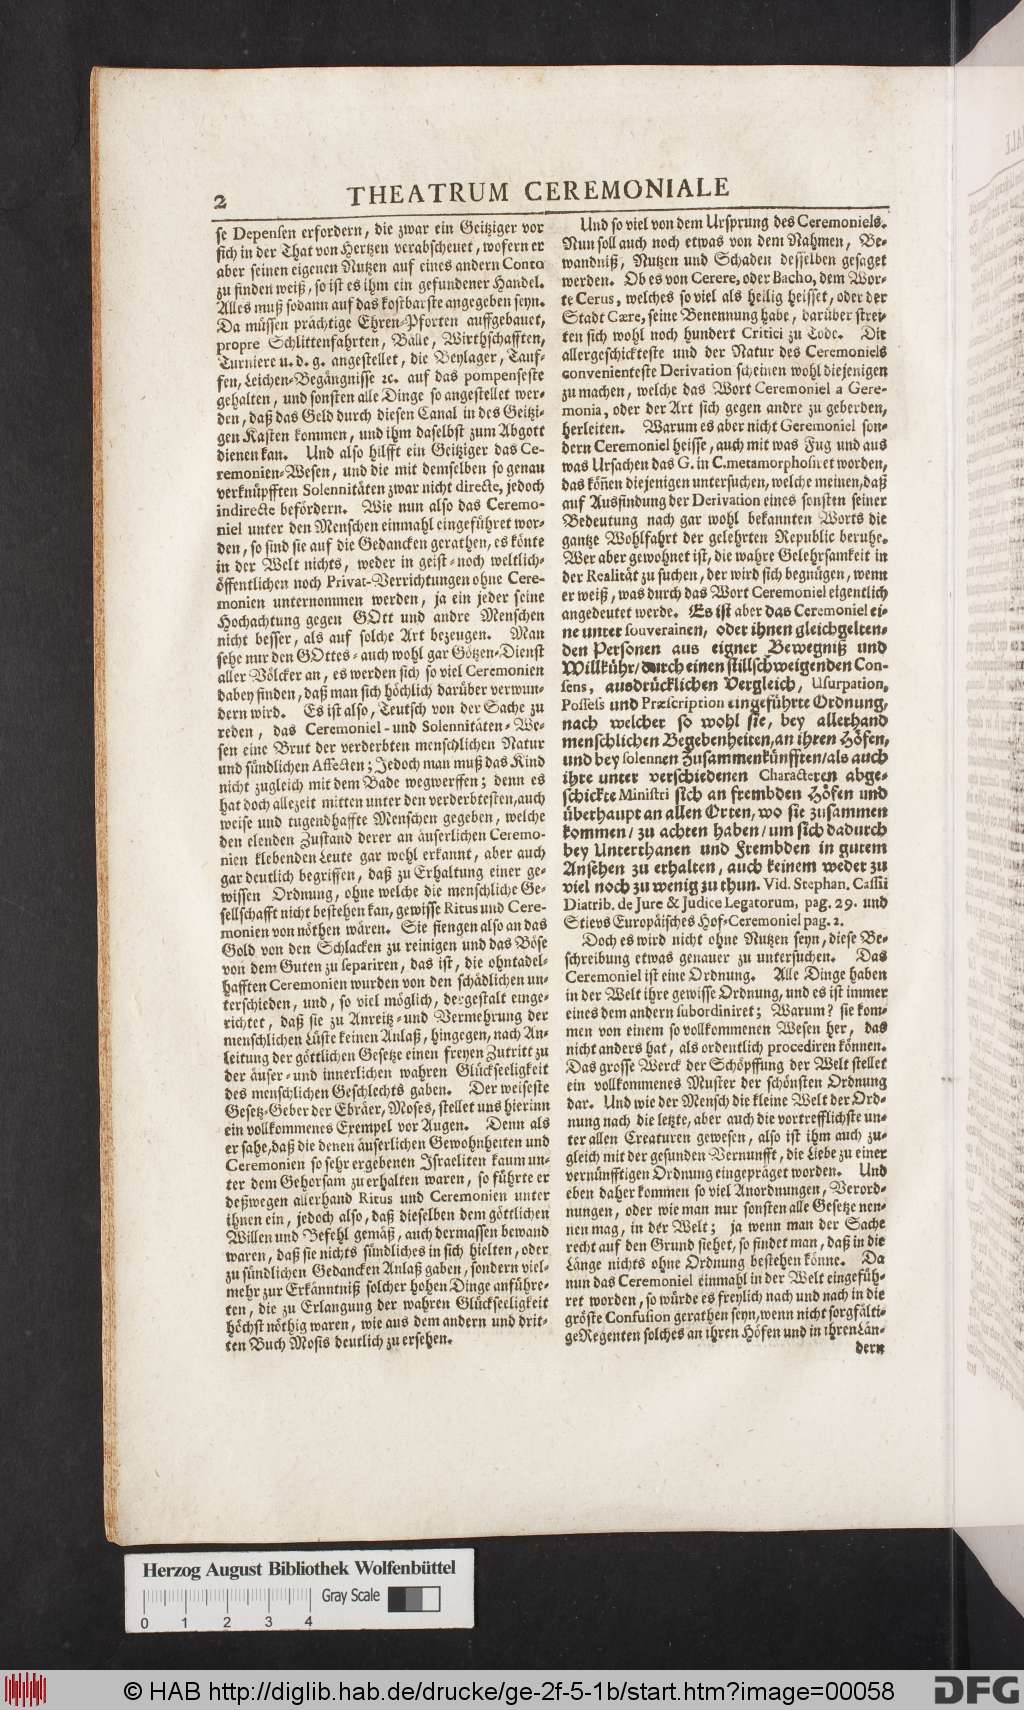 2
THEATRUM CEREMONIALE
se Depensen erfordern, die zwar ein Geitziger vor
sich in der That von Hertzen verabscheuet, wofern er
aber seinen eigenen Nutzen auf eines andern Conto
zu finden weiß, so ist es ihm ein gefundener Handel.
Alles muß sodann auf das kostbarste angegeben seyn.
Da müssen prächtige Ehren-Pforten auffgebauet,
propre Schlittenfahrten, Bälle, Wirthschafften,
Turniere u. d. g. angestellet, die Beylager, Tauf-
fen, Leichen-Begängnisse ꝛc. auf das pompenseste
gehalten, und sonsten alle Dinge so angestellet wer-
den, daß das Geld durch diesen Canal in des Geitzi-
gen Kasten kommen, und ihm daselbst zum Abgott
dienen kan. Und also hilfft ein Geitziger das Ce-
remonien-Wesen, und die mit demselben so genau
verknüpfften Solennitäten zwar nicht directe, jedoch
indirecte befördern. Wie nun also das Ceremo-
niel unter den Menschen einmahl eingeführet wor-
den, so sind sie auf die Gedancken gerathen, es könte
in der Welt nichts, weder in geist- noch weltlich-
öffentlichen noch Privat-Verrichtungen ohne Cere-
monien unternommen werden, ja ein jeder seine
Hochachtung gegen GOtt und andre Menschen
nicht besser, als auf solche Art bezeugen. Man
sehe nur den GOttes- auch wohl gar Götzen-Dienst
aller Völcker an, es werden sich so viel Ceremonien
dabey finden, daß man sich höchlich darüber verwun-
dern wird. Es ist also, Teutsch von der Sache zu
reden, das Ceremoniel- und Solennitäten-We-
sen eine Brut der verderbten menschlichen Natur
und sündlichen Affecten; Jedoch man muß das Kind
nicht zugleich mit dem Bade wegwerffen; denn es
hat doch allezeit mitten unter den verderbtesten, auch
weise und tugendhaffte Menschen gegeben, welche
den elenden Zustand derer an äuserlichen Ceremo-
nien klebenden Leute gar wohl erkannt, aber auch
gar deutlich begriffen, daß zu Erhaltung einer ge-
wissen Ordnung, ohne welche die menschliche Ge-
sellschafft nicht bestehen kan, gewisse Ritus und Cere-
monien von nöthen wären. Sie fiengen also an das
Gold von den Schlacken zu reinigen und das Böse
von dem Guten zu separiren, das ist, die ohntadel-
hafften Ceremonien wurden von den schädlichen un-
terschieden, und, so viel möglich, dergestalt einge-
richtet, daß sie zu Anreitz- und Vermehrung der
menschlichen Lüste keinen Anlaß, hingegen, nach An-
leitung der göttlichen Gesetze einen freyen Zutritt zu
der äuser- und innerlichen wahren Glückseeligkeit
des menschlichen Geschlechts gaben. Der weiseste
Gesetz-Geber der Ebräer, Moses, stellet uns hierinn
ein vollkommenes Exempel vor Augen. Denn als
er sahe, daß die denen äuserlichen Gewohnheiten und
Ceremonien so sehr ergebenen Israeliten kaum un-
ter dem Gehorsam zu erhalten waren, so führte er
deßwegen allerhand Ritus und Ceremonien unter
ihnen ein, jedoch also, daß dieselben dem göttlichen
Willen und Befehl gemäß, auch dermassen bewand
waren, daß sie nichts sündliches in sich hielten, oder
zu sündlichen Gedancken Anlaß gaben, sondern viel-
mehr zur Erkänntniß solcher hohen Dinge anführe-
ten, die zu Erlangung der wahren Glückseeligkeit
höchst nöthig waren, wie aus dem andern und drit-
ten Buch Mosis deutlich zu ersehen.
Und so viel von dem Ursprung des Ceremoniels.
Nun soll auch noch etwas von dem Nahmen, Be-
wandniß, Nutzen und Schaden desselben gesaget
werden. Ob es von Cerere, oder Bacho, dem Wor-
te Cerus, welches so viel als heilig heisset, oder der
Stadt Cære, seine Benennung habe, darüber strei-
ten sich wohl noch hundert Critici zu Tode. Die
allergeschickteste und der Natur des Ceremoniels
convenienteste Derivation scheinen wohl diejenigen
zu machen, welche das Wort Ceremoniel a Gere-
monia, oder der Art sich gegen andre zu geberden,
herleiten. Warum es aber nicht Geremoniel son-
dern Ceremoniel heisse, auch mit was Fug und aus
was Ursachen das G. in C. metamorphosiret worden,
das köñen diejenigen untersuchen, welche meinen, daß
auf Ausfindung der Derivation eines sonsten seiner
Bedeutung nach gar wohl bekannten Worts die
gantze Wohlfahrt der gelehrten Republic beruhe.
Wer aber gewohnet ist, die wahre Gelehrsamkeit in
der Realität zu suchen, der wird sich begnügen, wenn
er weiß, was durch das Wort Ceremoniel eigentlich
angedeutet werde. Es ist aber das Ceremoniel ei-
ne unter souverainen, oder ihnen gleichgelten-
den Personen aus eigner Bewegniß und
Willkühr/ durch einen stillschweigenden Con-
sens, ausdrücklichen Vergleich, Usurpation,
Possess und Præscription eingeführte Ordnung,
nach welcher so wohl sie, bey allerhand
menschlichen Begebenheiten, an ihren Höfen,
und bey solennen Zusammenkünfften/ als auch
ihre unter verschiedenen Characteren abge-
schickte Ministri sich an frembden Höfen und
überhaupt an allen Orten, wo sie zusammen
kommen/ zu achten haben/ um sich dadurch
bey Unterthanen und Frembden in gutem
Ansehen zu erhalten, auch keinem weder zu
viel noch zu wenig zu thun. Vid. Stephan. Cassii
Diatrib. de Jure & Judice Legatorum, pag. 29. und
Stievs Europäisches Hof-Ceremoniel pag. 2.
Doch es wird nicht ohne Nutzen seyn, diese Be-
schreibung etwas genauer zu untersuchen. Das
Ceremoniel ist eine Ordnung. Alle Dinge haben
in der Welt ihre gewisse Ordnung, und es ist immer
eines dem andern subordiniret; Warum? sie kom-
men von einem so vollkommenen Wesen her, das
nicht anders hat, als ordentlich procediren können.
Das grosse Werck der Schöpffung der Welt stellet
ein vollkommenes Muster der schönsten Ordnung
dar. Und wie der Mensch die kleine Welt der Ord-
nung nach die letzte, aber auch die vortrefflichste un-
ter allen Creaturen gewesen, also ist ihm auch zu-
gleich mit der gesunden Vernunfft, die Liebe zu einer
vernünfftigen Ordnung eingepräget worden. Und
eben daher kommen so viel Anordnungen, Verord-
nungen, oder wie man nur sonsten alle Gesetze nen-
nen mag, in der Welt; ja wenn man der Sache
recht auf den Grund siehet, so findet man, daß in die
Länge nichts ohne Ordnung bestehen könne. Da
nun das Ceremoniel einmahl in der Welt eingefüh-
ret worden, so würde es freylich nach und nach in die
gröste Confusion gerathen seyn, wenn nicht sorgfälti-
ge Regenten solches an ihren Höfen und in ihren Län-
dern
Herzog August Bibliothek Wolfenbüttel
Gray Scale
0 1 2 3 4
© HAB http://diglib.hab.de/drucke/ge-2f-5-1b/start.htm?image=00058
DFG